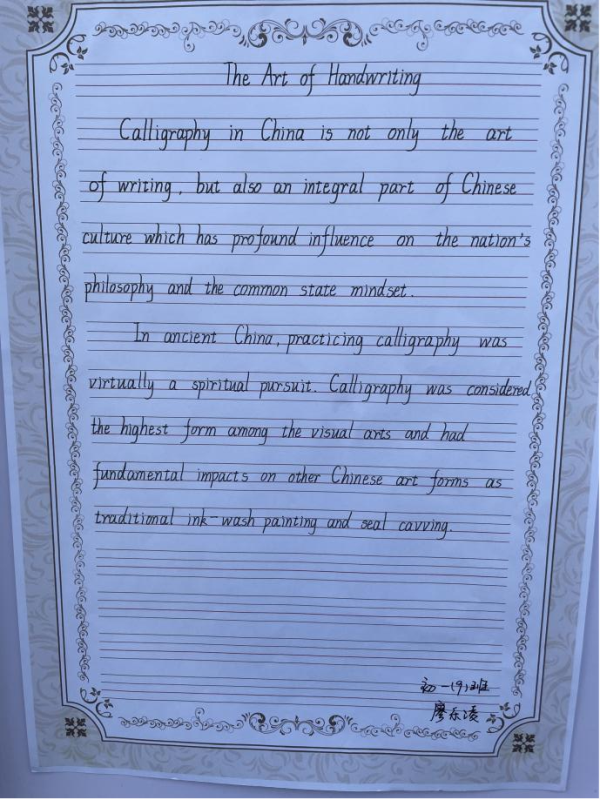 The Art of Handwriting
Calligraphy in China is not only the art
of writing, but also an integral part of Chinese
culture which has profound influence on the nation's
philosophy and the common state mindset.
In ancient China, practicing calligraphy was
virtually a spiritual pursuit. Calligraphy was considered
the highest form among the visual arts and had
fundamental impacts on other Chinese art forms as
traditional ink-wash painting and seal cavving.
初一(9)班
廖东凌